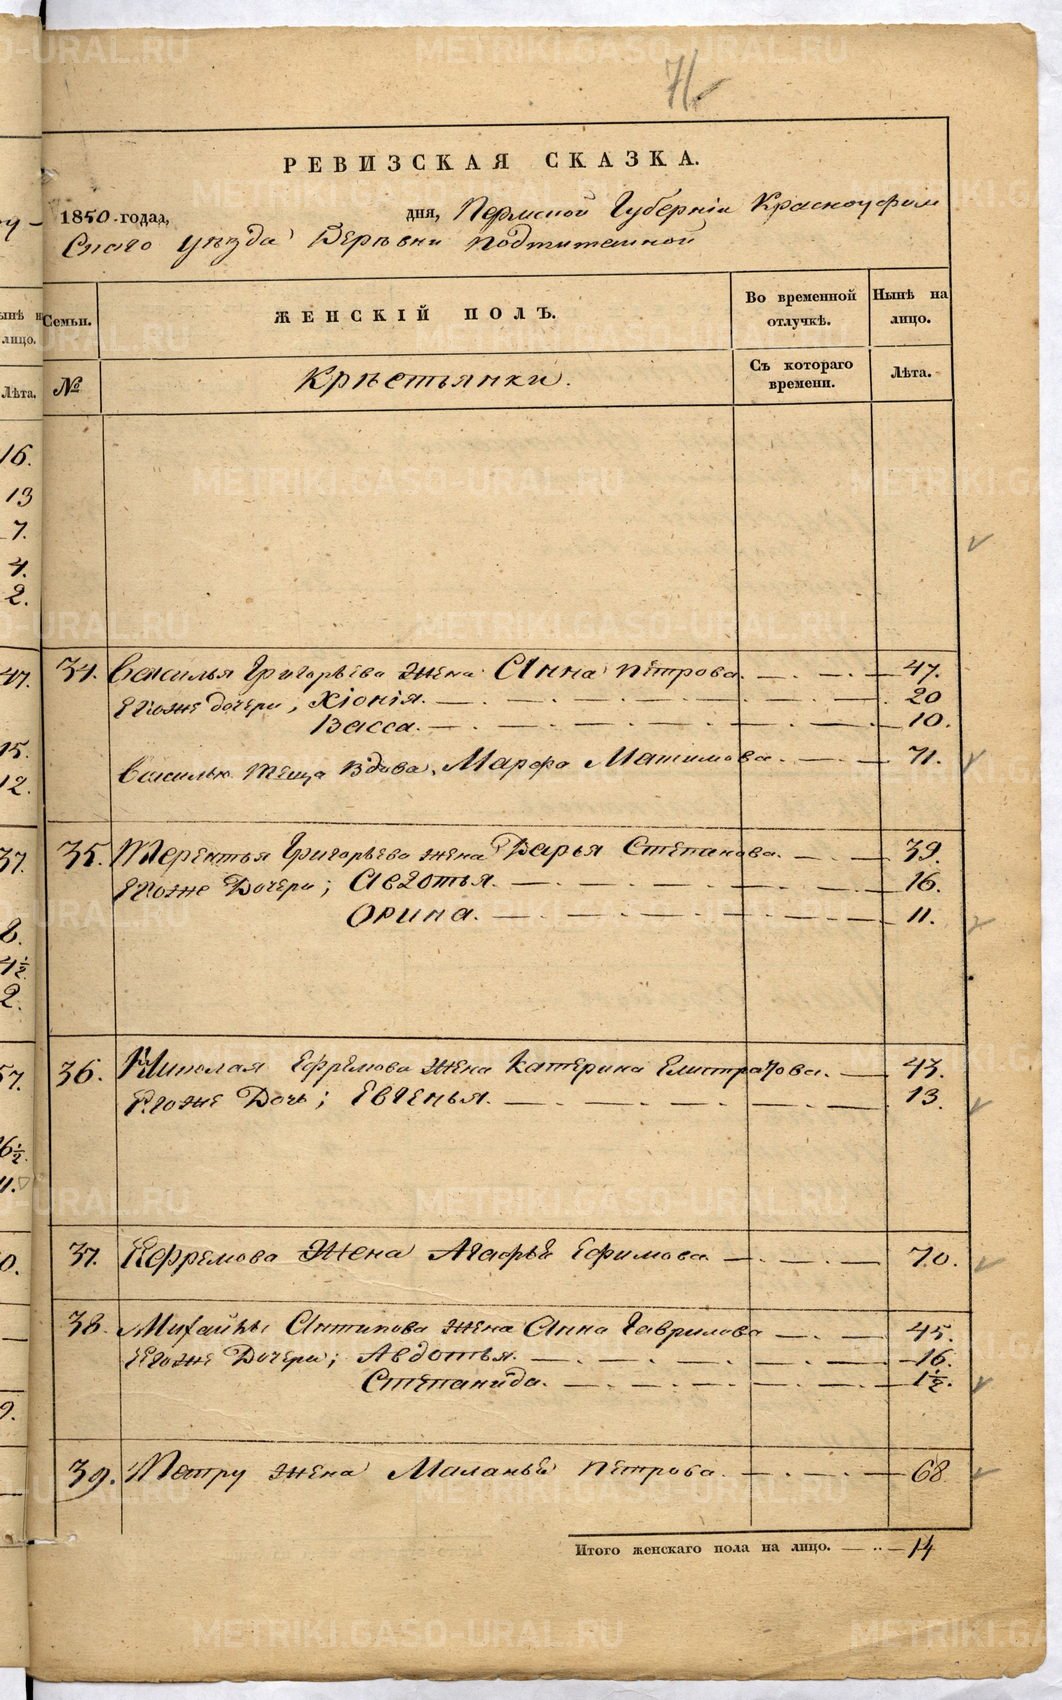 71
РЕВИЗСКАЯ СКАЗКА.
1850. годаа, дня, Пермской Губерніи Красноуфим
Скаго уѣзда Деревни Подтитешной
Семьи. ЖЕНСКІЙ ПОЛЪ. Во временной отлучкѣ. Нынѣ на лицо.
№ Крѣстьянки. Съ котораго времени. Лѣта.
34. Василья Григорьева жена Анна Петрова. 47.
Егоже дочери, Хіонія. 20
Васса. 10.
Василью теща вдова, Марфа Матимова. 71.
35. Терентья Григорьева жена Дарья Степанова. 39.
Егоже Дочери; Авдотья. 16.
Орина. 11.
36. Николая Ефремова жена Катерина Елистратова. 43.
Егоже Дочь; Евгенья. 13.
37. Ефремова жена Агафья Ефимова 70.
38. Михайлы Антипова жена Анна Гаврилова 45.
Егоже Дочери; Авдотья. 16.
Степанида. 1½.
39. Петру жена Маланья Петрова. 68
Итого женскаго пола на лицо. 14
METRIKI.GASO-URAL.RU